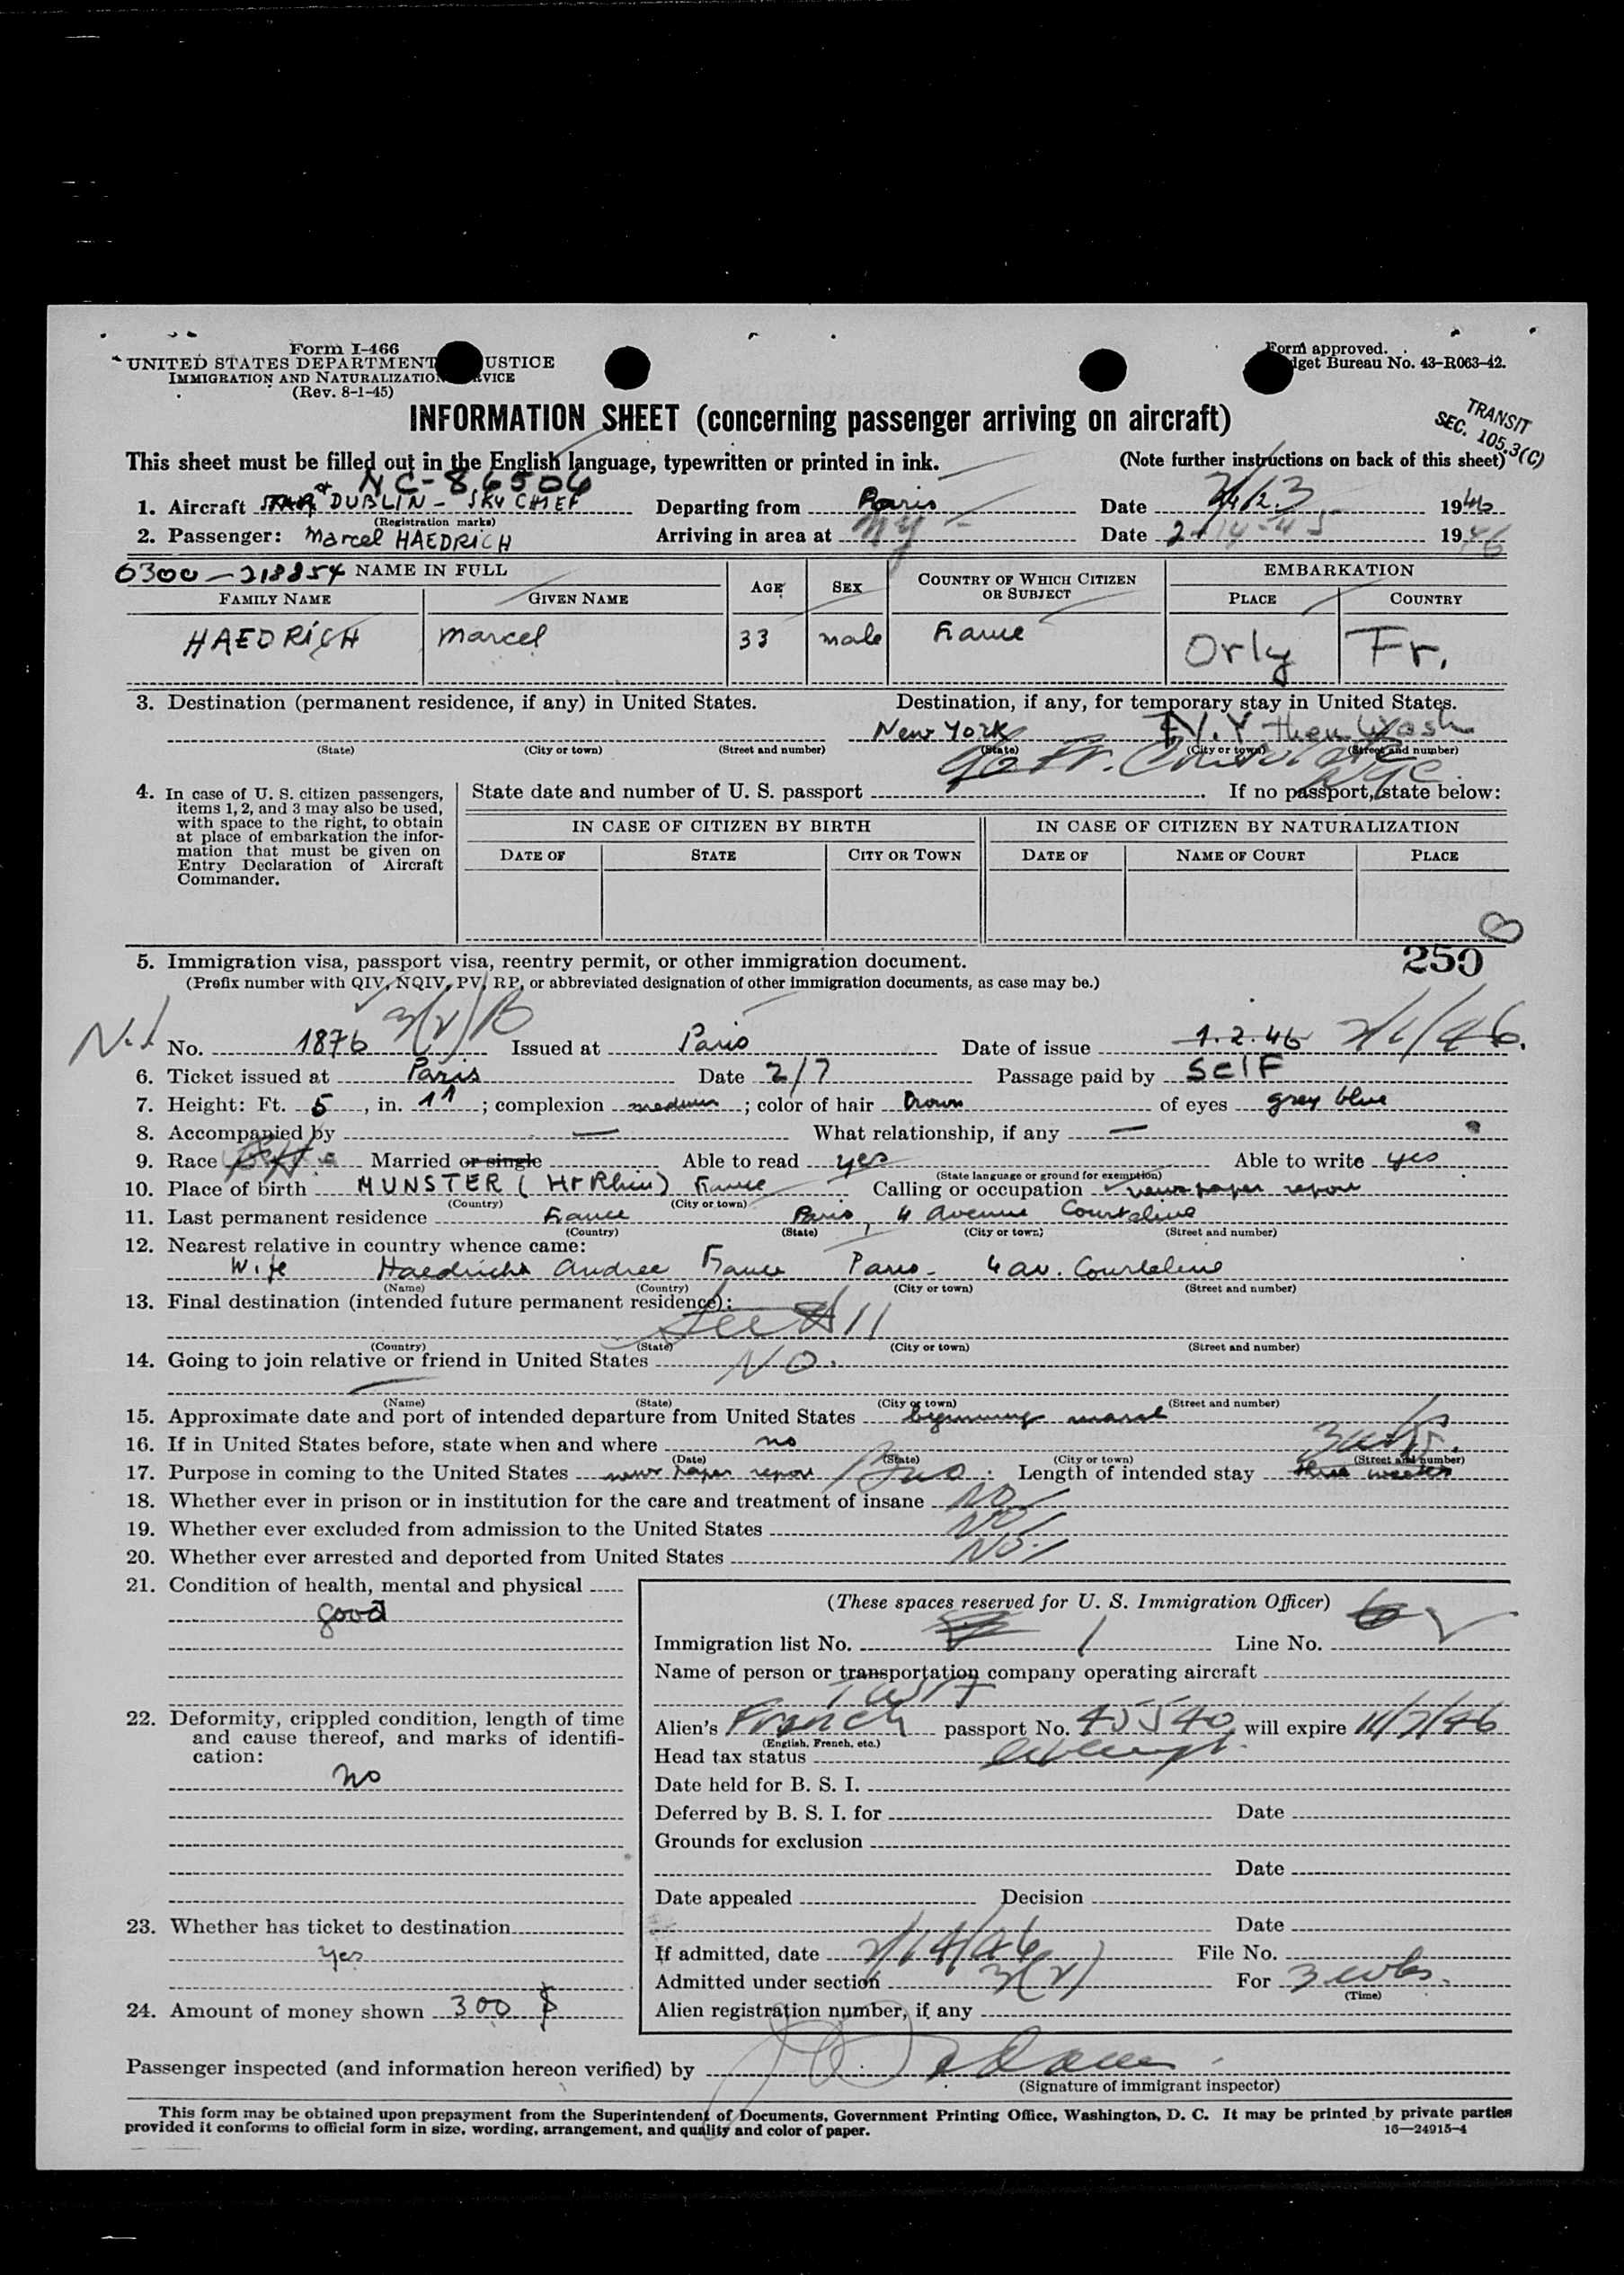 Form I-466
UNITED STATES DEPARTMENT USTICE
IMMIGRATION AND NATURALIZATION VICE
(Rev. 8-1-45)
Form approved.
dget Bureau No. 43-R063-42.
INFORMATION SHEET (concerning passenger arriving on aircraft)
TRANSIT
SEC. 105.3(C)
This sheet must be filled out in the English language, typewritten or printed in ink.
(Note further instructions on back of this sheet)
NC-86506
1. Aircraft STAR of DUBLIN - SKY CHIEF Departing from Paris Date 2/13 1946
(Registration marks)
2. Passenger: Marcel HAEDRICH Arriving in area at NY Date 2-14-45 1946
6300-218854 NAME IN FULL
AGE SEX COUNTRY OF WHICH CITIZEN OR SUBJECT EMBARKATION
FAMILY NAME GIVEN NAME PLACE COUNTRY
HAEDRICH Marcel 33 male France Orly Fr.
3. Destination (permanent residence, if any) in United States. Destination, if any, for temporary stay in United States.
New YORK N.Y then Wash
(State) (City or town) (Street and number) (State) (City or town) (Street and number)
c/o Fr. Consulate
NYC
4. In case of U. S. citizen passengers, items 1, 2, and 3 may also be used, with space to the right, to obtain at place of embarkation the information that must be given on Entry Declaration of Aircraft Commander.
State date and number of U. S. passport . If no passport, state below:
IN CASE OF CITIZEN BY BIRTH IN CASE OF CITIZEN BY NATURALIZATION
DATE OF STATE CITY OR TOWN DATE OF NAME OF COURT PLACE
250
5. Immigration visa, passport visa, reentry permit, or other immigration document.
(Prefix number with QIV, NQIV, PV, RP, or abbreviated designation of other immigration documents, as case may be.)
No. 1876 3(2)/B Issued at Paris Date of issue 1.2.46 2/1/46.
6. Ticket issued at Paris Date 2/7 Passage paid by SELF
7. Height: Ft. 5, in. 11; complexion medium; color of hair brown of eyes grey blue
8. Accompanied by — What relationship, if any —
9. Race Married or single Able to read yes Able to write yes
(State language or ground for exemption)
10. Place of birth MUNSTER (Ht Rhin) France Calling or occupation newspaper report
(Country) (City or town)
11. Last permanent residence France Paris, 4 avenue Courteline
(Country) (State) (City or town) (Street and number)
12. Nearest relative in country whence came:
Wife Haedrich Andree France Paris - 4 av. Courteline
(Name) (Country) (City or town) (Street and number)
13. Final destination (intended future permanent residence):
See # 11
(Country) (State) (City or town) (Street and number)
14. Going to join relative or friend in United States No.
(Name) (State) (City or town) (Street and number)
15. Approximate date and port of intended departure from United States beginning march
16. If in United States before, state when and where no
(Date) (State) (City or town) (Street and number)
3 wks.
17. Purpose in coming to the United States news paper report / Bus. Length of intended stay three weeks
18. Whether ever in prison or in institution for the care and treatment of insane No
19. Whether ever excluded from admission to the United States No
20. Whether ever arrested and deported from United States No
21. Condition of health, mental and physical
good
22. Deformity, crippled condition, length of time and cause thereof, and marks of identification:
no
23. Whether has ticket to destination
yes
24. Amount of money shown 300 $
(These spaces reserved for U. S. Immigration Officer)
Immigration list No. 1 Line No.
Name of person or transportation company operating aircraft
TWA
Alien's French passport No. 45540, will expire 11/7/46
(English, French, etc.)
Head tax status
Date held for B. S. I.
Deferred by B. S. I. for Date
Grounds for exclusion
Date
Date appealed Decision
Date
If admitted, date 2/14/46 File No.
Admitted under section 3(2) For 3 wks.
(Time)
Alien registration number, if any
Passenger inspected (and information hereon verified) by
(Signature of immigrant inspector)
This form may be obtained upon prepayment from the Superintendent of Documents, Government Printing Office, Washington, D. C. It may be printed by private parties
provided it conforms to official form in size, wording, arrangement, and quality and color of paper.
16—24915-4